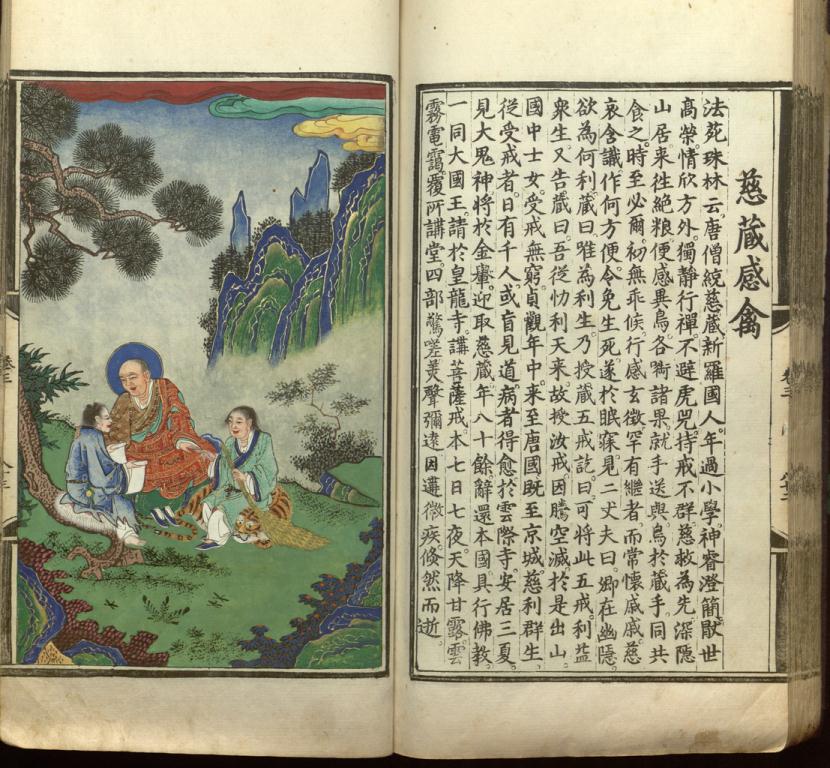 慈藏感禽
法苑珠林云。唐僧統慈藏新羅國人。年過小學。神睿澄簡。厭世
高榮。情欣方外。獨靜行禪。不避虎兕。持戒不群。慈救為先。深隱
山居。来往絶粮。便感異鳥。各銜諸果。就手送與。鳥於藏手。同共
食之。時至必爾。初無乖候。行感玄徵。罕有繼者。而常懷慼慼。慈
哀含識。作何方便。令免生死。遂於眠寐。見二丈夫曰。卿在幽隱。
欲為何利。藏曰。唯為利生。乃授藏五戒訖。曰可將此五戒。利益
衆生。又告藏曰。吾從忉利天来。故授汝戒。因騰空滅。於是出山。
國中士女。受戒無窮。貞觀年中。来至唐國。既至京城。慈利群生。
從受戒者。日有千人。或盲見道。病者得愈。於雲際寺。安居三夏。
見大鬼神將於金轝。迎取慈藏。年八十餘。辭還本國。具行佛教。
一同大國。王請於皇龍寺。講菩薩戒本。七日七夜。天降甘露。雲
霧奄靄。覆所講堂。四部驚嗟。美聲彌遠。因遘微疾。倏然而逝。
卷三